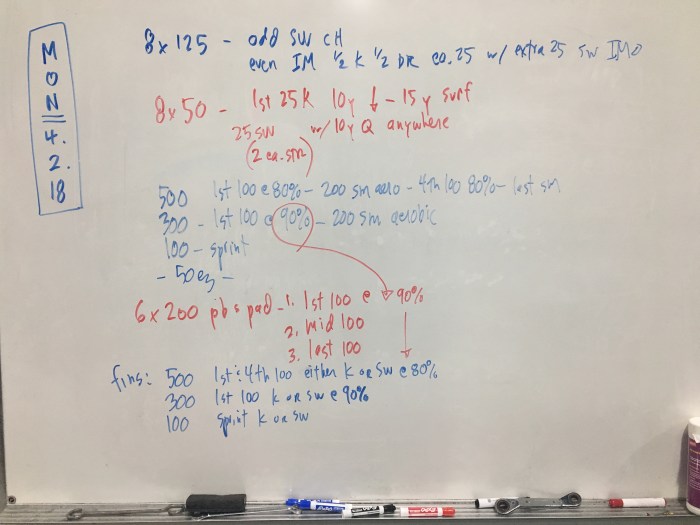 MON 4.2.18
8x125 - odd SW CH
even IM 1/2 K 1/2 DR ea.25 w/ extra 25 SW IMO
8x50 - 1st 25 K 10y ↓ - 15y surf
25 SW w/ 10y Q anywhere
(2 ea. STR)
500 1st 100 @ 80% - 200 sm aero - 4th 100 80% - last sm
300 - 1st 100 @ 90% - 200 sm aerobic
100 - sprint
- 50 ez -
6x200 pb & pad - 1. 1st 100 @ 90%
2. mid 100
3. last 100
fins: 500 1st & 4th 100 either K or SW @ 80%
300 1st 100 K or SW @ 90%
100 sprint K or SW